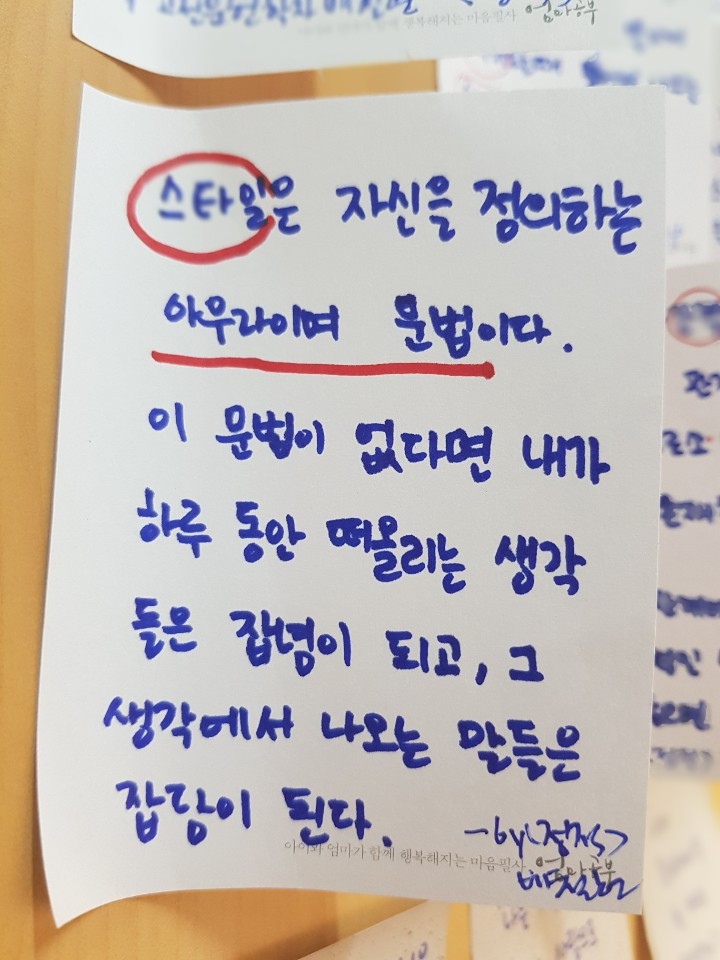 스타일은 자신을 정의하는
아우라이며 문법이다.
이 문법이 없다면 내가
하루 동안 떠올리는 생각
들은 잡념이 되고, 그
생각에서 나오는 말들은
잡담이 된다.
-by <정적>
배철현
아이와 엄마가 함께 행복해지는 마음필사 엄마공부
행복해지는 마음필사 엄마공부